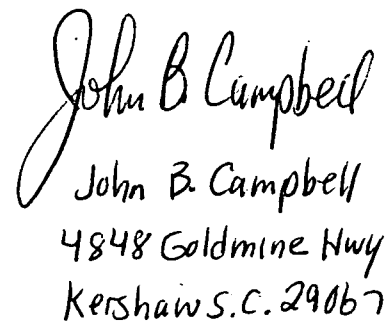 John B Campbell
John B. Campbell
4848 Goldmine Hwy
Kershaw S.C. 29067